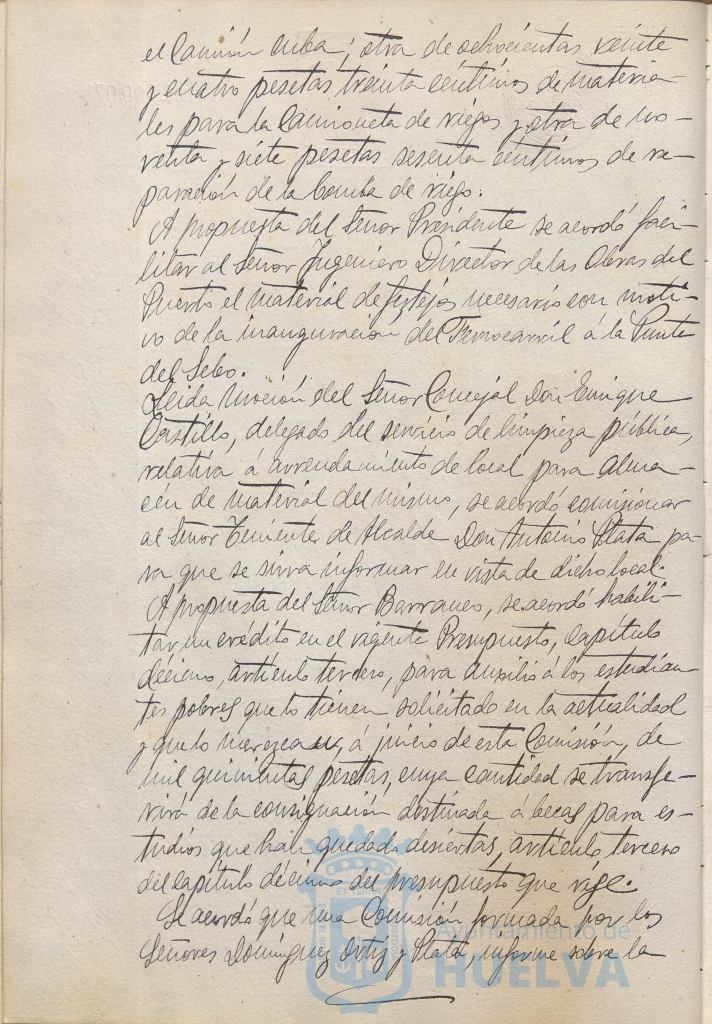 el Camión cuba; otra de ochocientas veinte
y cuatro pesetas treinta céntimos de materia-
les para la Camioneta de riegos y otra de no-
venta y siete pesetas sesenta céntimos de re-
paración de la bomba de riego.
A propuesta del Señor Presidente se acordó faci-
litar al Señor Ingeniero Director de las Obras del
Puerto el material de festejos necesario con moti-
vo de la inauguración del Ferrocarril á la Punta
del Sebo.
Leida moción del Señor Concejal Don Enrique
Castillo, delegado del servicio de limpieza pública,
relativa á arrendamiento de local para alma-
cén de material del mismo, se acordó comisionar
al Señor Teniente de Alcalde Don Antonio Plata pa-
ra que se sirva informar en vista de dicho local.
A propuesta del Señor Barranco, se acordó habili-
tar un crédito en el vigente Presupuesto, Capítulo
décimo, artículo tercero, para auxilio á los estudian
tes pobres que lo tienen solicitado en la actualidad
y que lo merezcan, á juicio de esta Comisión, de
mil quinientas pesetas, cuya cantidad se transfe-
rirá de la consignación destinada á becas para es-
tudios que han quedado desiertas, artículo, tercero
del capítulo décimo del presupuesto que rige.
Se acordó que una Comisión formada por los
Señores Domínguez Ortiz y Plata, informe sobre la
Ayuntamiento de
HUELVA